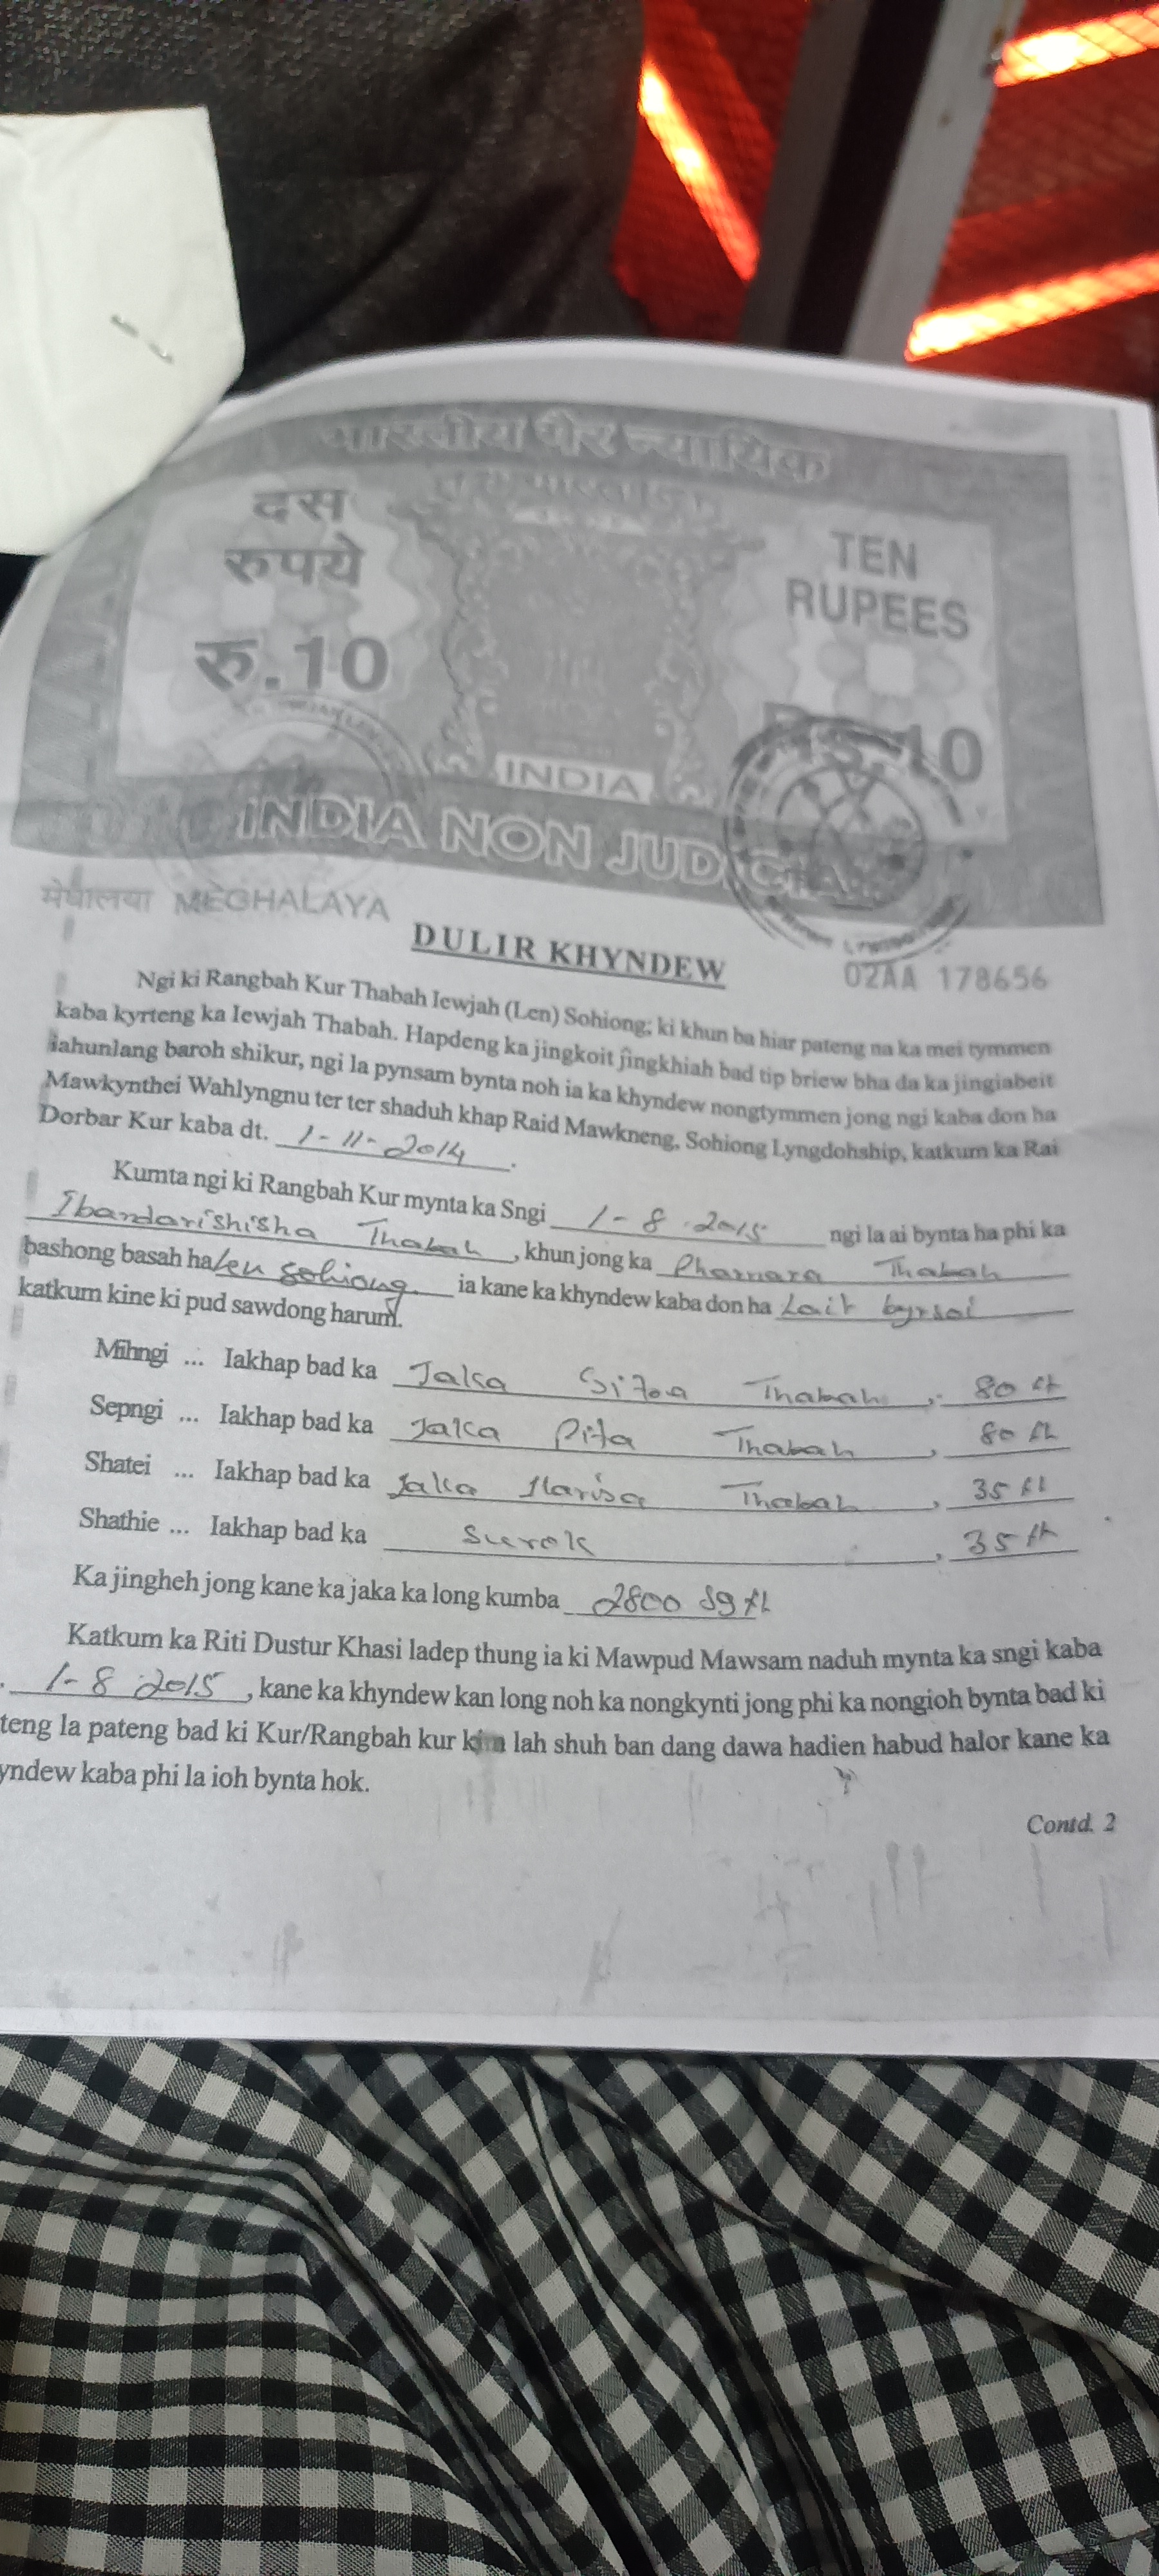 भारतीय गैर न्यायिक
दस
रुपये
रु.10
TEN
RUPEES
RS.10
INDIA
INDIA NON JUDICIAL
मेघालया MEGHALAYA
02AA 178656
DULIR KHYNDEW
Ngi ki Rangbah Kur Thabah Iewjah (Len) Sohiong; ki khun ba hiar pateng na ka mei tymmen
kaba kyrteng ka Iewjah Thabah. Hapdeng ka jingkoit jingkhiah bad tip briew bha da ka jingiabeit
iahunlang baroh shikur, ngi la pynsam bynta noh ia ka khyndew nongtymmen jong ngi kaba don ha
Mawkynthei Wahlyngnu ter ter shaduh khap Raid Mawkneng, Sohiong Lyngdohship, katkum ka Rai
Dorbar Kur kaba dt. 1-11-2014.
Kumta ngi ki Rangbah Kur mynta ka Sngi 1-8-2015 ngi la ai bynta ha phi ka
Ibandarishisha Thabah, khun jong ka Thabah
bashong basah ha Len Sohiong ia kane ka khyndew kaba don ha Lait byrsai
katkum kine ki pud sawdong harum.
Mihngi ... Iakhap bad ka Jaka Thabah, 80 ft
Sepngi ... Iakhap bad ka Jaka Pita Thabah, 80 ft
Shatei ... Iakhap bad ka Jaka Thabah, 35 ft
Shathie ... Iakhap bad ka Surok, 35 ft
Ka jingheh jong kane ka jaka ka long kumba 2800 sq ft
Katkum ka Riti Dustur Khasi ladep thung ia ki Mawpud Mawsam naduh mynta ka sngi kaba
1-8-2015, kane ka khyndew kan long noh ka nongkynti jong phi ka nongioh bynta bad ki
teng la pateng bad ki Kur/Rangbah kur lah shuh ban dang dawa hadien habud halor kane ka
yndew kaba phi la ioh bynta hok.
Contd. 2